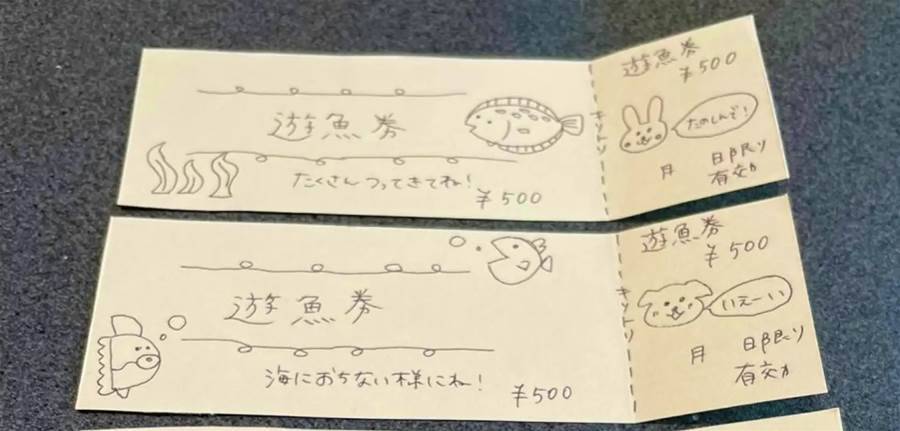 遊魚券
たくさんつってきてね!
¥500
キリトリ
遊魚券
¥500
たのしんで!
月 日限り
有効
遊魚券
海におちない様にね!
¥500
キリトリ
遊魚券
¥500
いえーい
月 日限り
有効